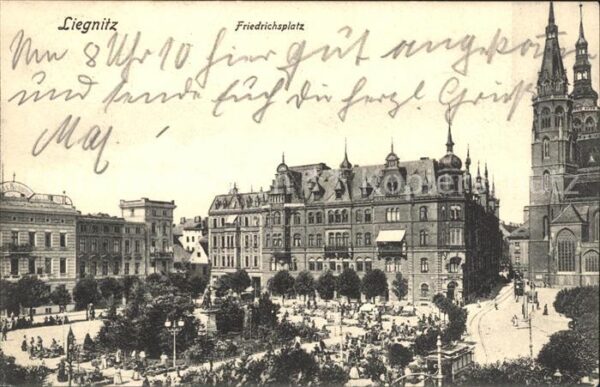 Liegnitz
Friedrichsplatz
Um 8 Uhr 10 hier gut angekom
und sende Euch die herzl. Grüß
Max